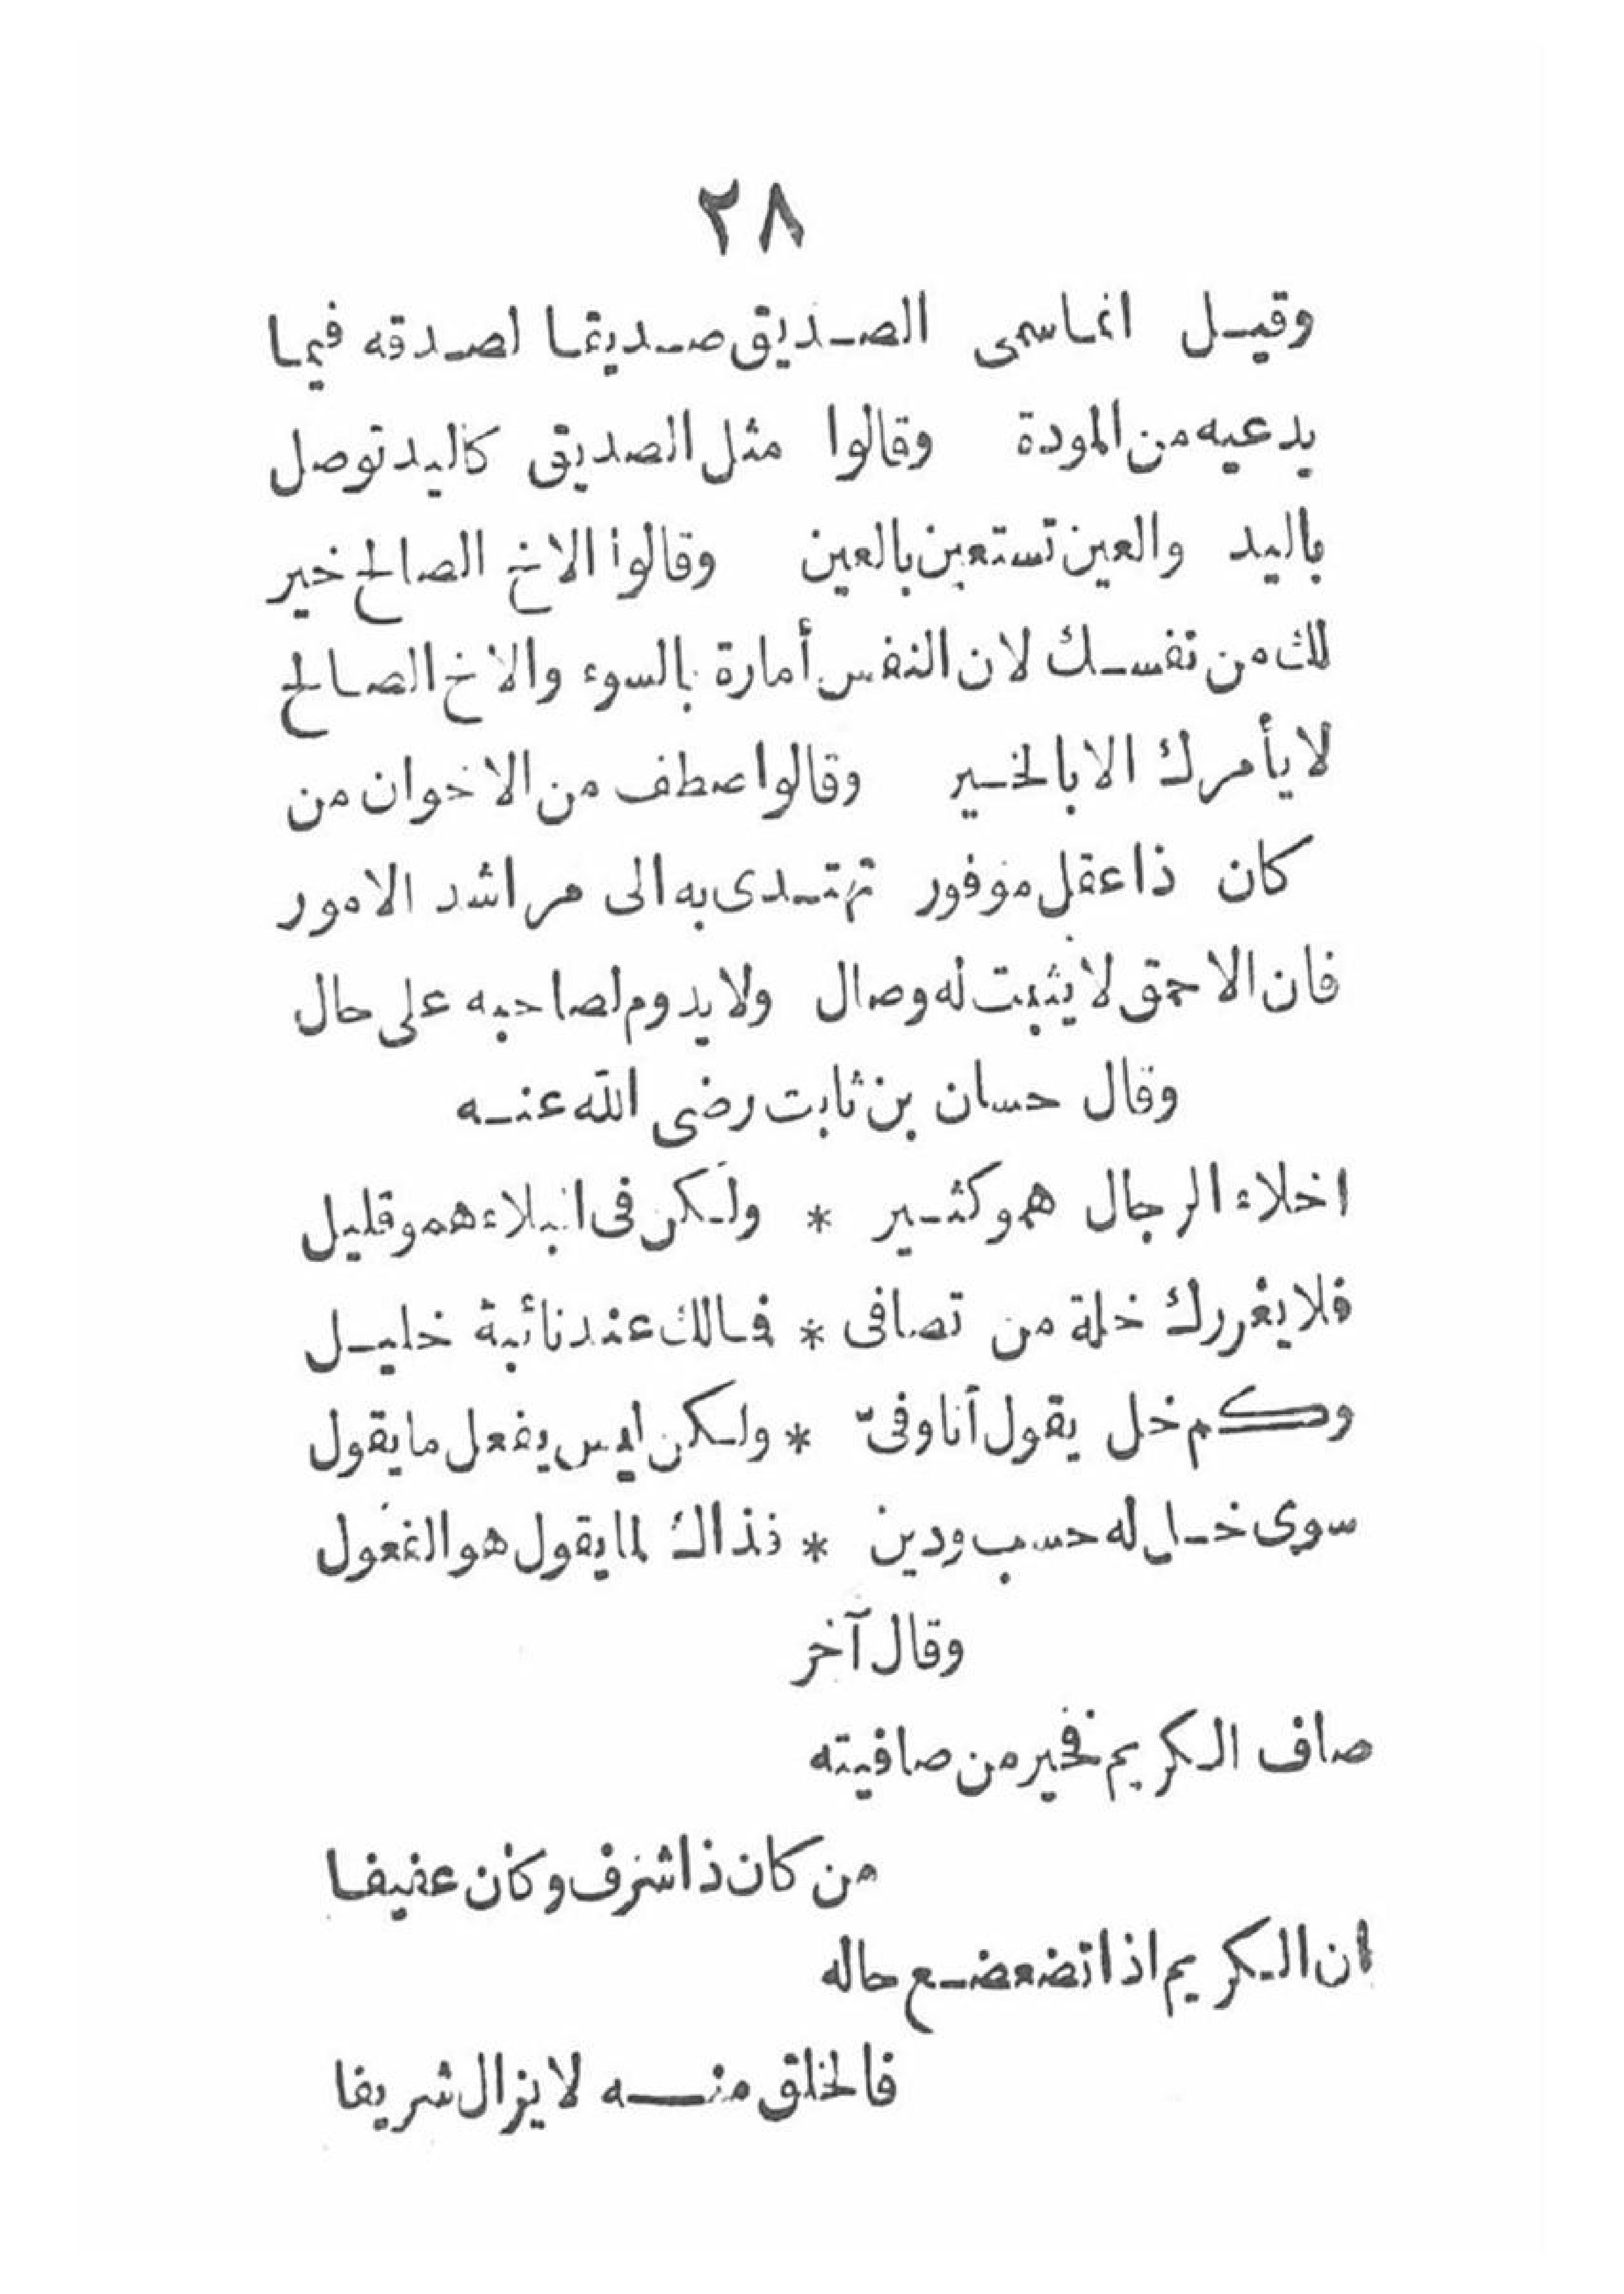 ٢٨
وقيل انما سمى الصديق صديقا لصدقه فيما
يدعيه من المودة وقالوا مثل الصديق كاليد توصل
باليد والعين تستعين بالعين وقالوا الاخ الصالح خير
لك من نفسك لان النفس أمارة بالسوء والاخ الصالح
لا يأمرك الا بالخير وقالوا اصطف من الاخوان من
كان ذا عقل موفور تهتدى به الى مراشد الامور
فان الاحمق لا يثبت له وصال ولا يدوم لصاحبه على حال
وقال حسان بن ثابت رضى الله عنه
اخلاء الرجال همو كثير * ولكن فى البلاء همو قليل
فلا يغررك خلة من تصافى * فمالك عند نائبة خليل
وكم خل يقول أنا وفىّ * ولكن ليس يفعل ما يقول
سوى خل له حسب ودين * فذاك لما يقول هو الفعول
وقال آخر
صاف الكريم فخير من صافيته
من كان ذا شرف وكان عفيفا
ان الكريم اذا تضعضع حاله
فالخلق منه لا يزال شريفا